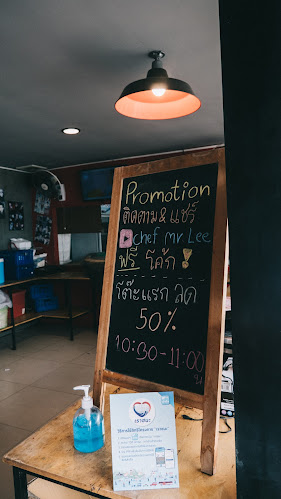 Promotion
ติดตาม & แชร์
chef Mr Lee
ฟรี โค้ก !
โต๊ะแรก ลด
50%
10:30-11:00
น.
เราชนะ